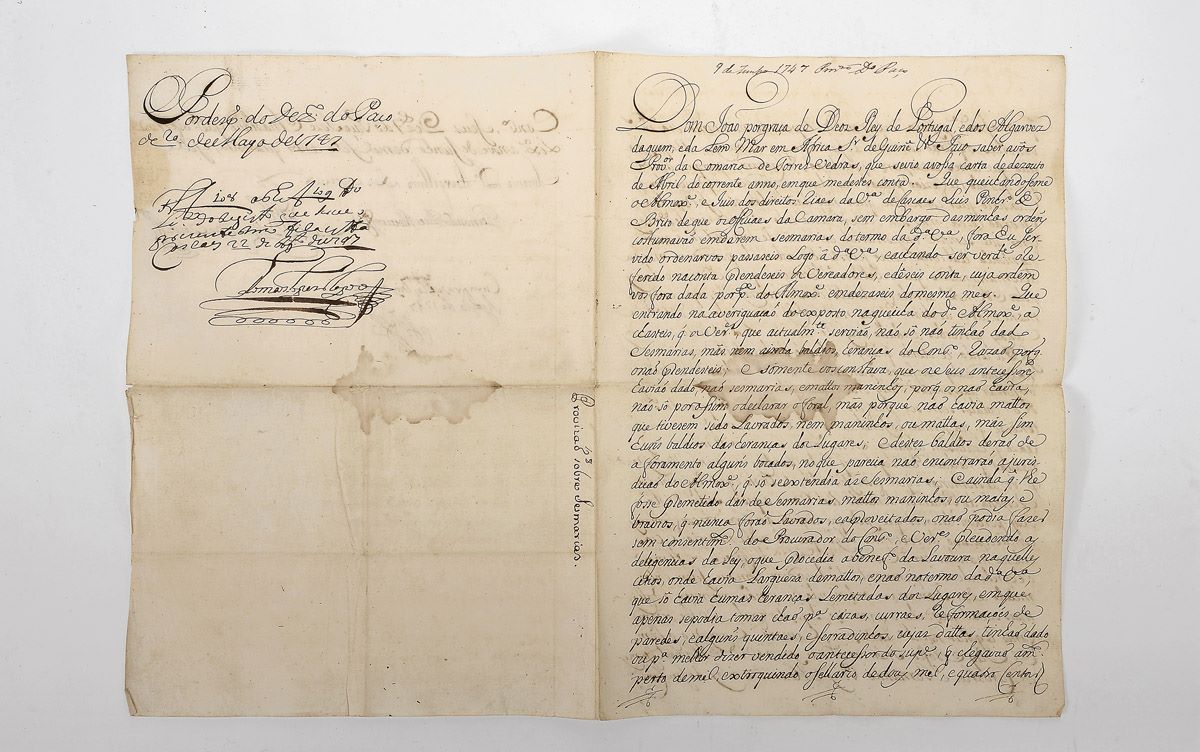 Por desp.º do Dez.º do Paço
de 20 de Mayo de 1747
Cascaes 22 de
9 de Junho 1747 Prov.am Do Paço
Dom João por graça de Deos Rey de Portugal, e dos Algarvez
daquem, e da Lem Mar em Africa S.r de Guiné &.ª Faço saber a vós
Prov.or da Comarca de Torres Vedras, que se vio a vosa carta de dezouto
de Abril do corrente anno, em que me destes conta Que queixandoseme
o Almox.e e Juis dos direitos Reaes da V.ª de Cascaes Luis
Brito de que os officiaes da Camara, sem embargo das minhas ordẽs
costumavão em darem sesmarias do termo da d.ª V.ª, fora Eu ser-
vido ordenarvos passaseis Logo á d.ª V.ª, e achando ser verd.e o Re-
ferido na conta Prendeseis os Vereadores, e déseis conta, cuja ordem
vos fora dada por p.te do Almox.e em dezaseis do mesmo mes. Que
entrando na averiguação do exposto na queixa do d.º Almox.e, a
chasteis, q̃ os Ver.es, que actualm.te servião, não só não tinhão dado
Sesmarias, mas nem ainda baldios, e eranças do Cons.º, Razão porq̃
os não Prendesteis; e somente vos constava, que os seus antecessores
havião dado, não sesmarias, e mattos maninhos, porq̃ os não havia,
não só por asim o declarar o foral, mas porque não havia mattos
que tivesem sido Lavrados, nem maninhos, ou mattas, mas sim
huns baldios das eranças dos Lugares; e destes baldios derão de
a foramento alguns bocados, no que parecia não encontrarão a juris-
dicão do Almox.e q̃ só se extendia ás Sesmarias; E ainda q̃ lhe
fose Premetido dar de Sesmarias mattos maninhos, ou matas, e
bravios, q̃ nunca forão Lavrados, e aproveitados, o não podia fazer
sem consentim.to do Procurador do Cons.º, e Ver.es Precedendo as
deligencias da Ley, o que Procedia a benef.º da Lavoura naquelles
citios, onde havia Largueza de mattos, e não no termo da d.ª V.ª,
que só havia humas eranças Lemitadas dos Lugares, em que
apenas se podia tomar chão p.ª cazas, curraes, Reformações de
paredes, e alguns quintaes, e serradinhos, cujas dattas tinhão dado
ou p.ª melhor dizer vendido o antecessor do sup.e, q̃ chegavão a m.to
perto de mel, extorquindo, o sellario de dous mel, e quatro Centos
Provizão sobre Sesmarias.